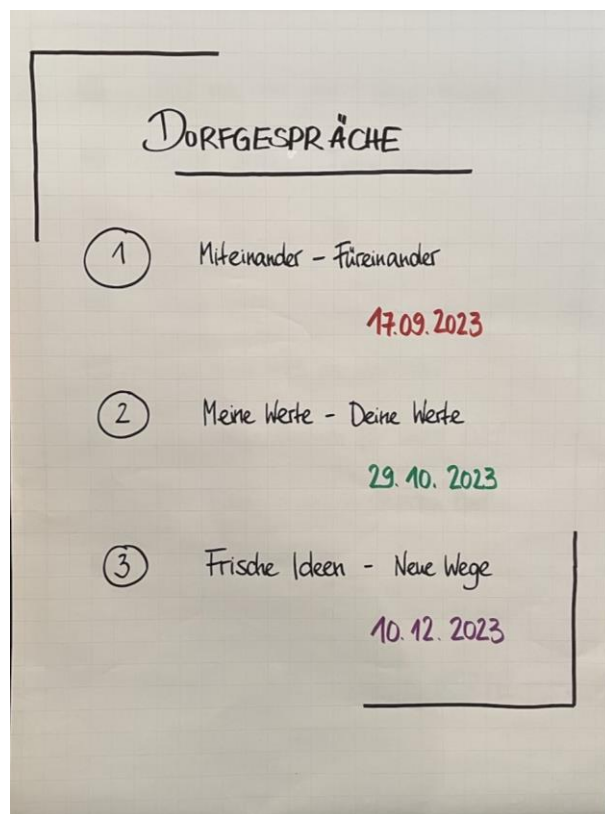 DORFGESPRÄCHE
1 Miteinander - Füreinander
17.09.2023
2 Meine Werte - Deine Werte
29.10.2023
3 Frische Ideen - Neue Wege
10.12.2023